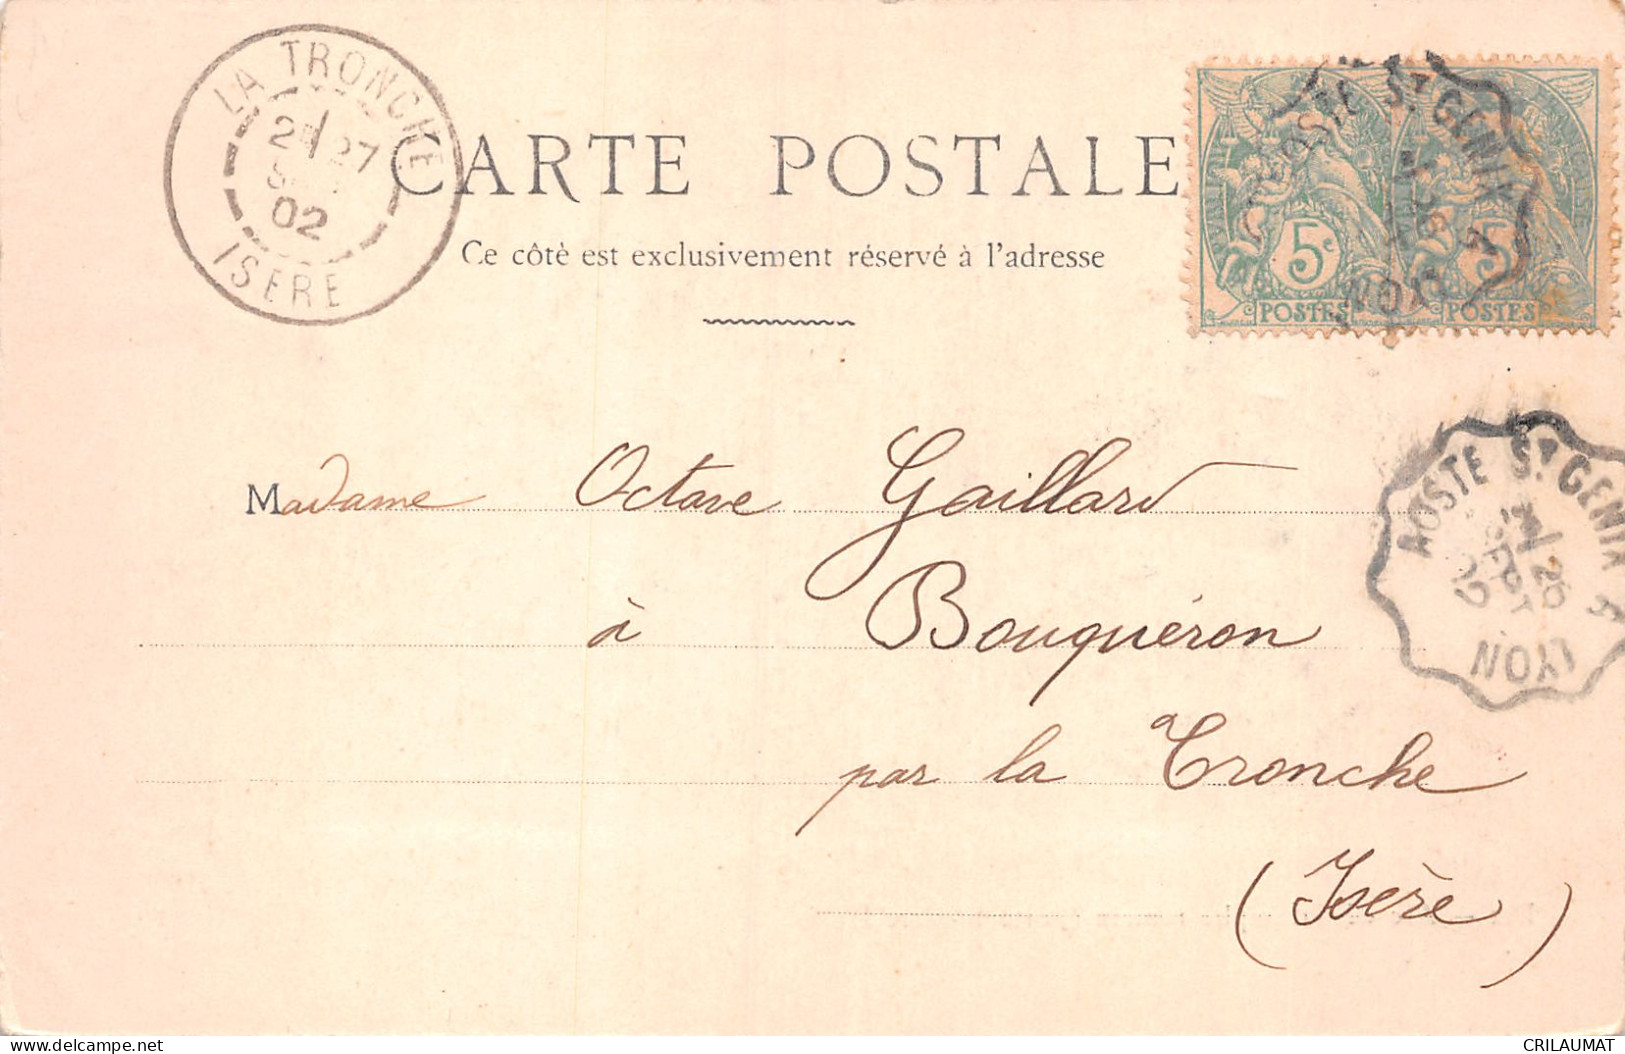 LA TRONCHE
27
02
ISERE
CARTE POSTALE
Ce côtè est exclusivement réservé à l'adresse
AOSTE St GENIX A
LYON
5c 5c
POSTES POSTES
Madame Octave Gaillard
à Bouquéron
par la Tronche
(Isère)
AOSTE St GENIX A
26
SEPT
02
LYON
CRILAUMAT